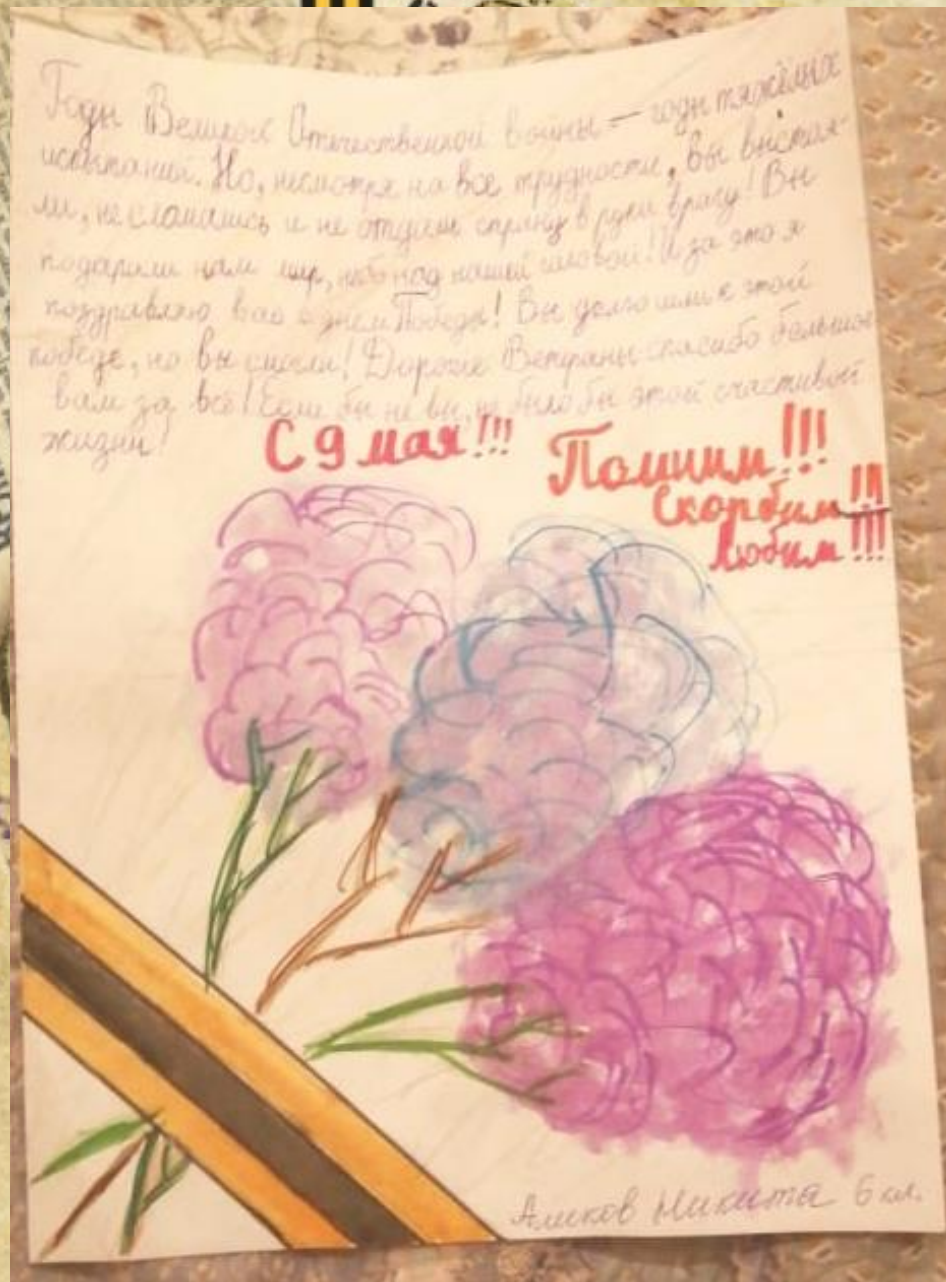 Годы Великой Отечественной войны – годы тяжёлых
испытаний. Но, несмотря на все трудности, вы выстоя-
ли, не сломались и не отдали страну в руки врагу! Вы
подарили нам мир, небо над нашей головой! И за это я
поздравляю вас с днем Победы! Вы долго шли к этой
победе, но вы смогли! Дорогие Ветераны спасибо большое
вам за всё! Если бы не вы, не было бы этой счастивой
жизни!
С 9 мая!!!
Помним!!!
Скорбим!!!
Любим!!!
Никита 6 кл.